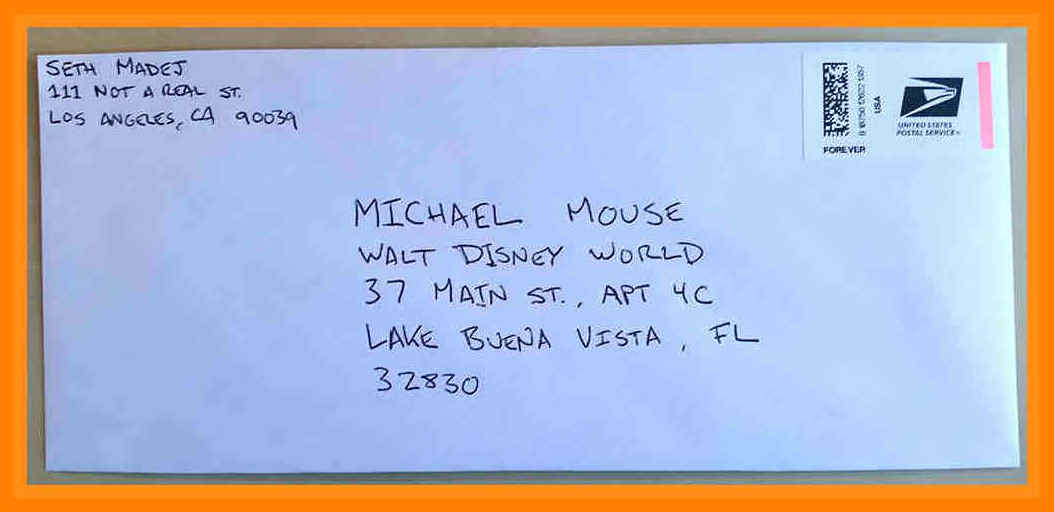 SETH MADEJ
111 NOT A REAL ST.
LOS ANGELES, CA 90039
FOREVER
USA
UNITED STATES
POSTAL SERVICE
MICHAEL MOUSE
WALT DISNEY WORLD
37 MAIN ST., APT 4C
LAKE BUENA VISTA, FL
32830